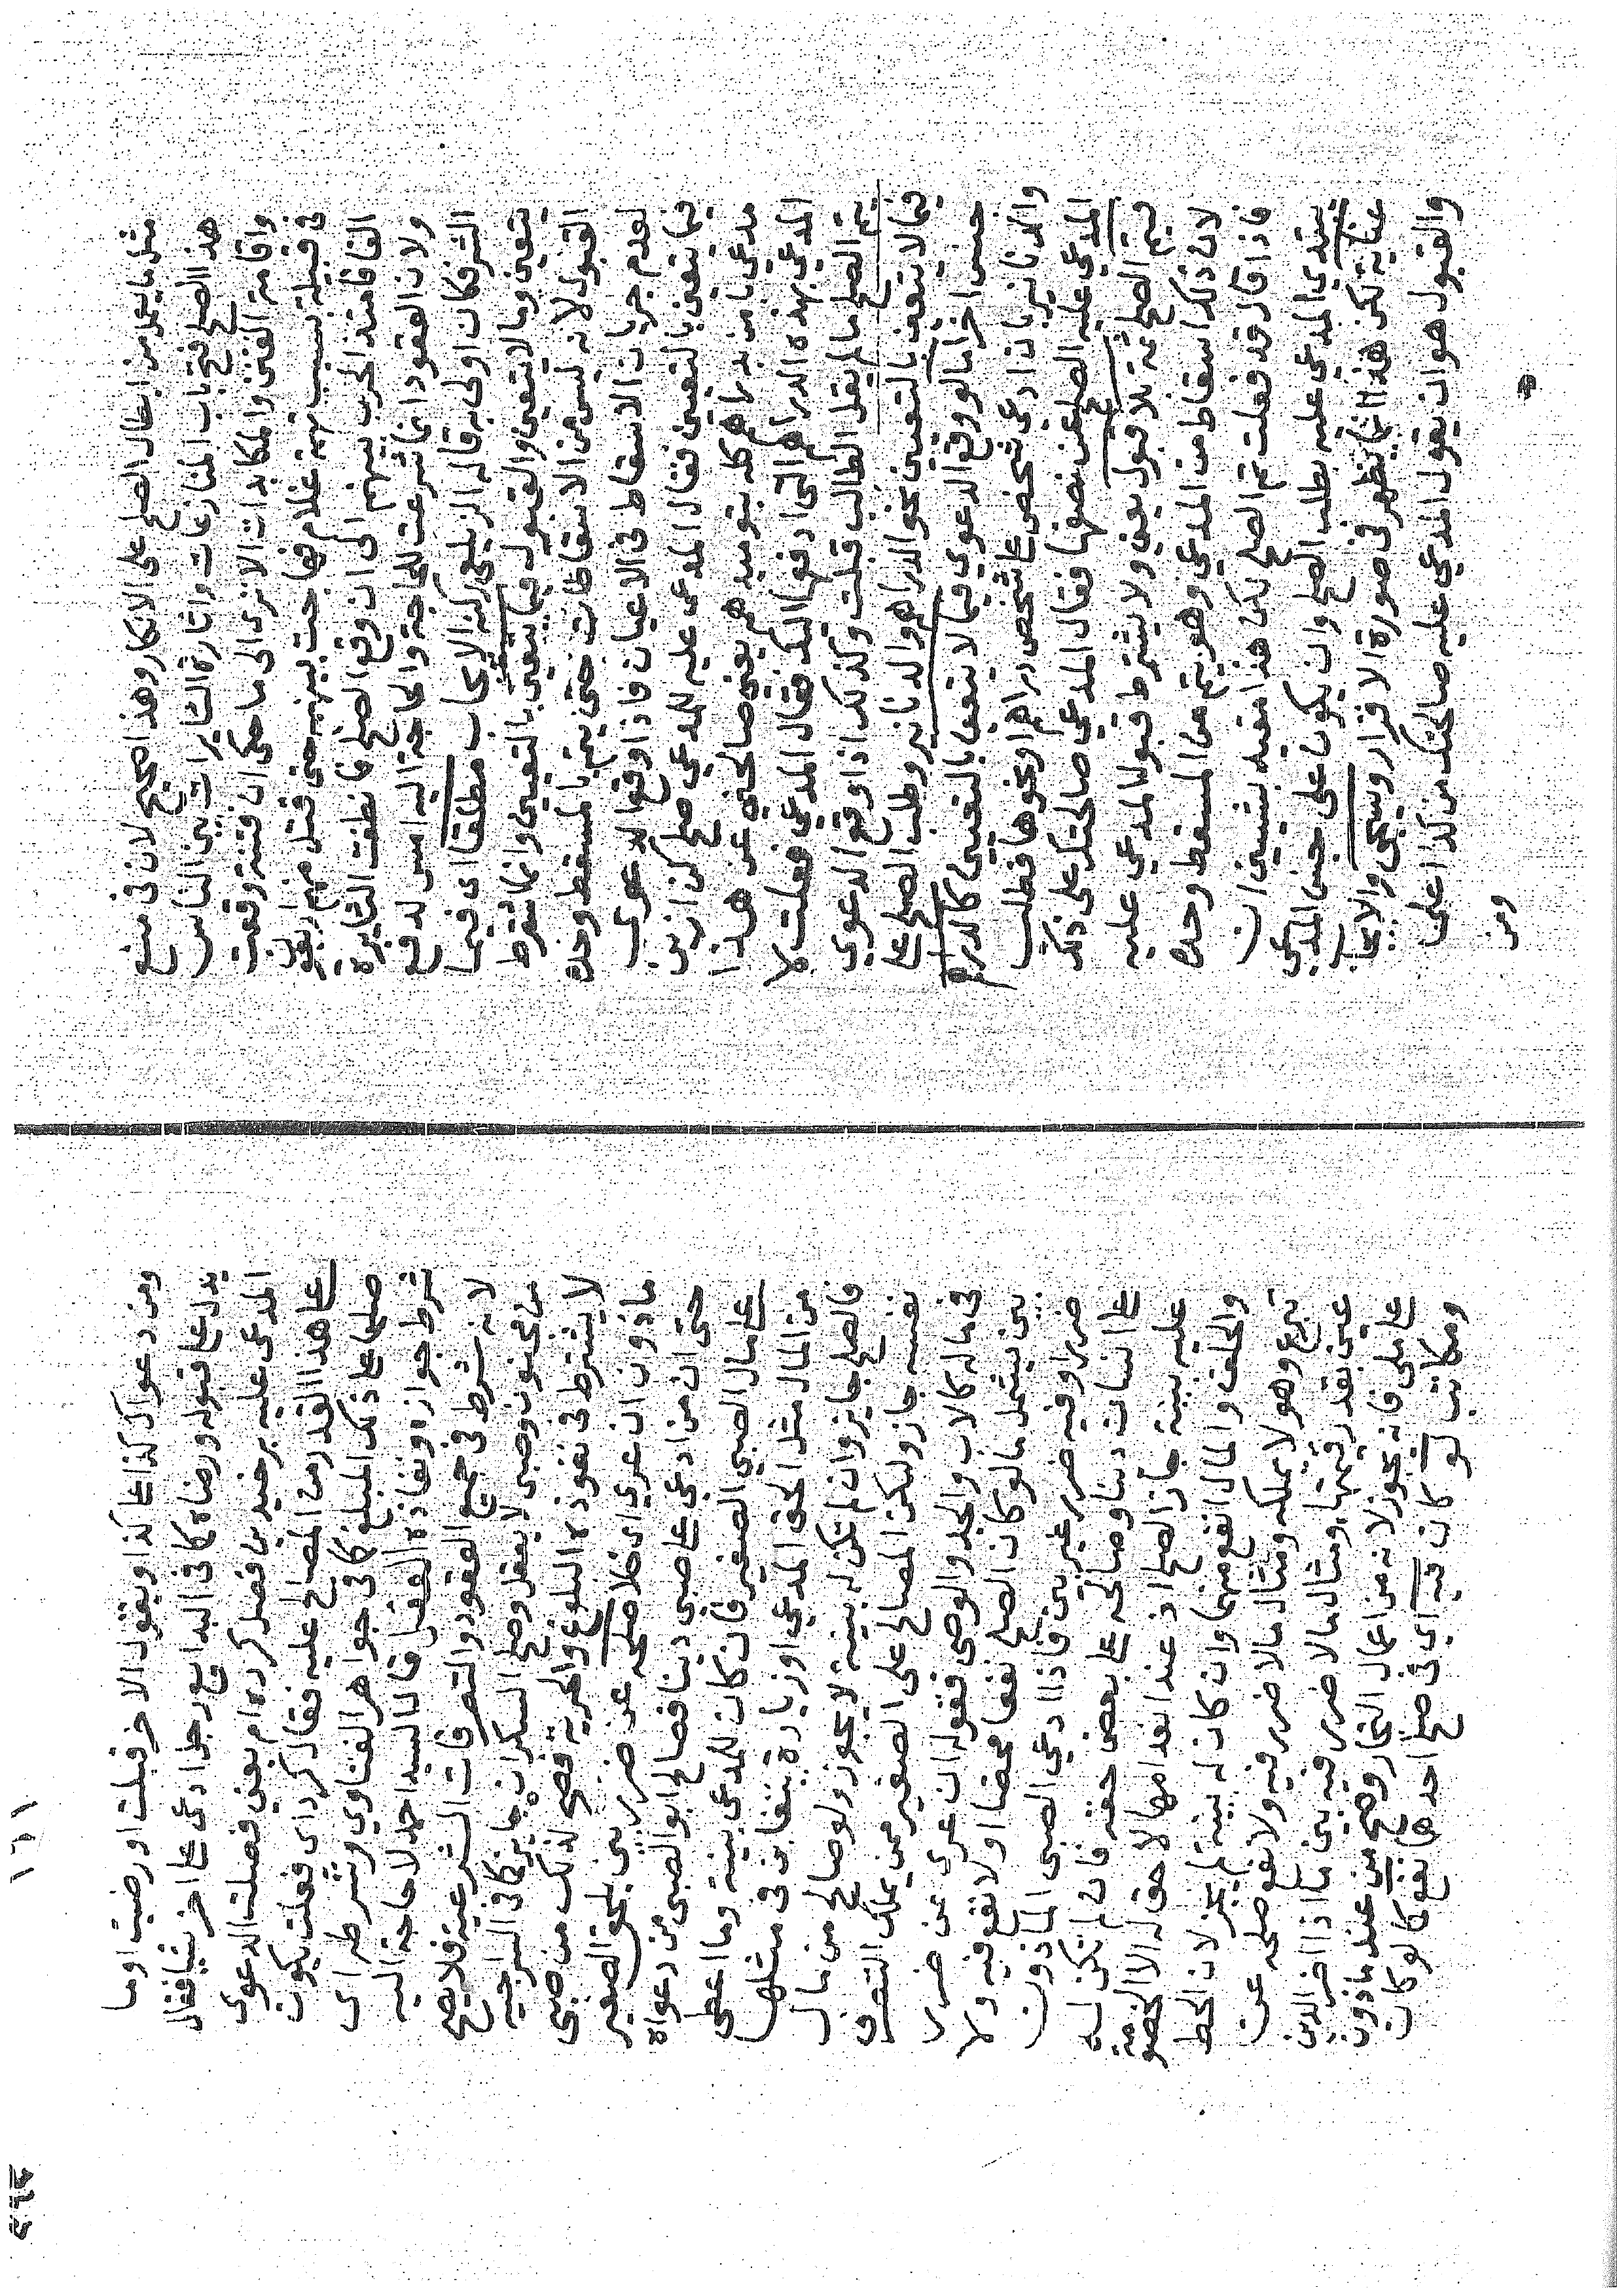 مثل ما يعمل من ابطال الصلح على الانكار وهذا صحيح لان في منع
هذا الصلح فتح باب المنازعات واثارة الثايرات بين الناس
واقامة الفتن والمكابدات الا ترى الى ما حكي ان فتنة وقعت
في قبيلة بسبب تهمة غلام فهاجت بينهم حتى قتل منهم اربعون
الفا فامتد الحرب بينهم الى ان وقع الصلح فانطفت الثايرة
ولان العقود انما شرعت للحاجة والحاجة اليه امس لدفع
الشر فكان اولى به قاله الزيلعي ركنه الايجاب مطلقا اي فيما
يتعين وما لا يتعين والقبول فيما يتعين بالتعيين وانما شرط
القبول لانه ليس من الاسقاطات حتى يتم بالمسقط وحده
لعدم جريان الاسقاط في الاعيان فاذا وقع الدعوى
فيما يتعين بالتعيين فقال المدعى عليه للمدعي صلح كن ازين
مدعى با من بدراهم كه بتو ميدهم يعني صالحني عن هذا
المدعي بهذه الدراهم التي ادفعها اليك فقال المدعي فعلت لا
يتم الصلح ما لم يقل الطالب قبلت وكذلك اذا وقع الدعوي
فيما لا يتعين بالتعيين نحو الدراهم والدنانير وطلب الصلح على
جنس اخر اما لو وقع الدعوي فيما لا يتعين بالتعيين كالدراهم
والدنانير بان ادعى شخص على شخص دراهم او نحوها فطلب
المدعي عليه الصلح عن نصفها فقال المدعي صالحتك على ذلك
فيتم الصلح ثمة بلا قبول يعني ولا يشترط قبول المدعي عليه
لان ذلك اسقاط من المدعي وهو يتم من المسقط وحده
فاذا قال قد فعلت تم الصلح لكن هذا مقيد بشيئين ان
يبتدي المدعي عليه بطلب الصلح وان يكون على جنس المدعي
عناية لكن هذا انما يظهر في صورة الاقرار وسيجي والايجاب
والقبول هو ان يقول المدعي عليه صالحتك من كذا على
ومن
١٦١
ومن دعواك كذا على كذا ويقول الاخر قبلت او رضيت او ما
يدل على قبوله ورضاه كما في البدايع رجل ادعى على اخر شيا فقال
المدعى عليه برخيد بن فصل كرده ام يعني فصلت الدعوى
على هذا القدر من المصالح عليه فقال كرد اي فعلت يكون
صلحا على ذلك المبلغ كما في جواهر الفتاوي وشرطه اي
شرط جوازه ونفاذه العقل قال السيد احمد لا حاجة اليه
لانه شرط في جميع العقود والتصرفات الشرعية فلا يصح
من مجنون وصبي لا يعقل وصلح السكران جايز كما في السراجيه
لا يشترط في نفوذه البلوغ والحرية فصح لذلك من صبي
ماذون ان عري اي خلا صلحه عن ضرر بين يلحق الصغير
حتى ان من ادعي على صبي دينا فصالح ابو الصبي من دعواه
على مال الصبي الصغير فان كان للمدعي بينة وما اعطى
من المال مثل الحق المدعي او زيادة يتغابن في مثلها
فالصلح جايز وان لم تكن له بينة لا يجوز ولو صالح من مال
نفسه جاز وليكن المصالح على الصغير ممن يملك التصرف
في ماله كالاب والجد والوصي فقوله ان عري عن ضرر
بين يشمل ما لو كان الصلح نفعا محضا او لا نفع فيه ولا
ضرر او فيه ضرر غير بين فاذا ادعي الصبي الماذون
على انسان دينا وصالحه على بعض حقه فان لم تكن له
عليه بينة جاز الصلح اذ عند انعدامها لا حق له الا الخصومة
والحلف والمال انفع منهما وان كان له بينة لم يجز لان الحط
تبرع وهو لا يملكه ومثال ما لا ضرر فيه ولا نفع صلحه عن
عين بقدر قيمتها ومثال ما لا ضرر فيه بين ما اذا اخر الدين
على ملي فانه يجوز لانه من اعمال التجار وصح من عند ماذون
ومكاتب لو كان فيه اي في صلح احدهما نفع كما لو كان